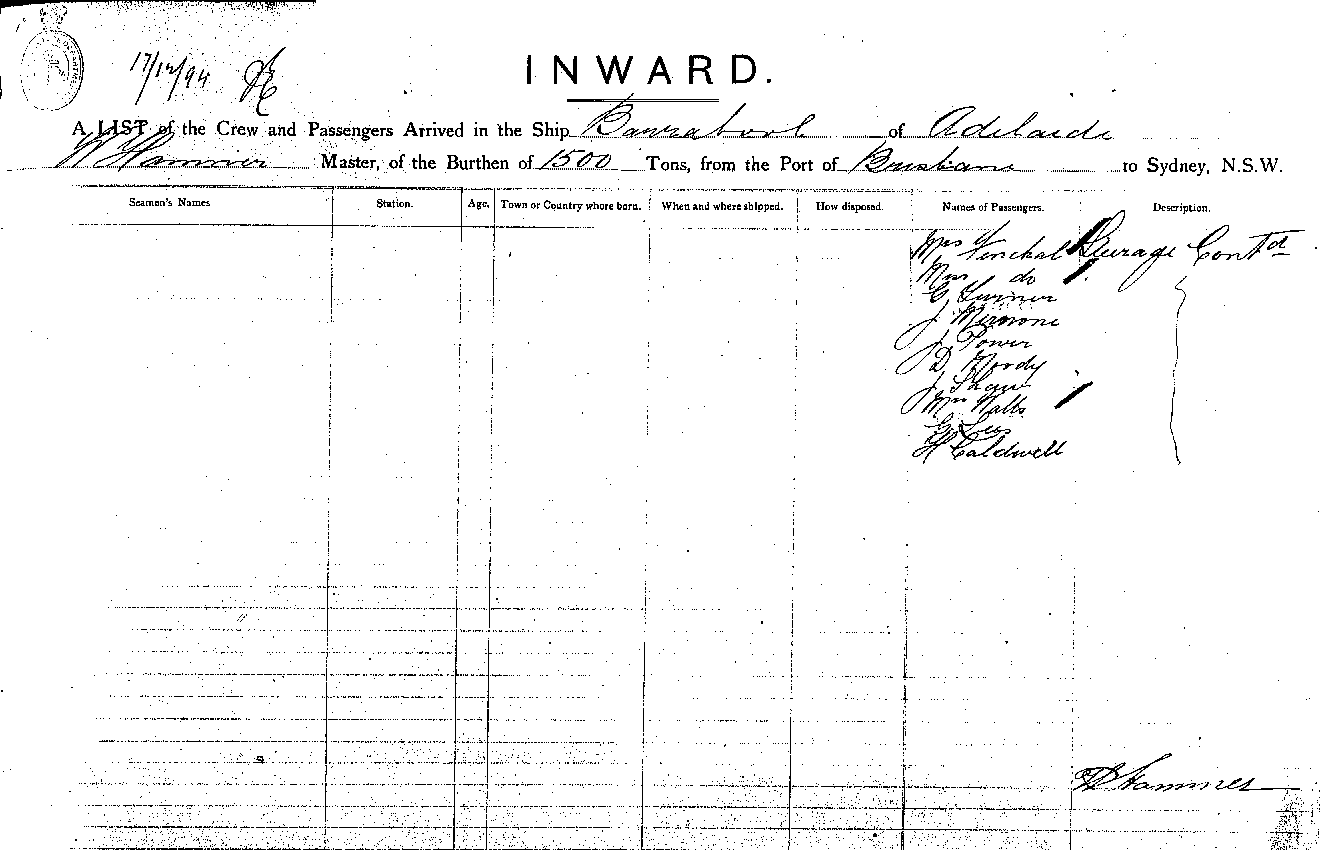 17/12/94
INWARD.
A LIST of the Crew and Passengers Arrived in the Ship Barrabool of Adelaide
W Hammer Master, of the Burthen of 1500 Tons, from the Port of Brisbane to Sydney, N.S.W.
Seamen's Names Station. Age. Town or Country where born. When and where shipped. How disposed. Names of Passengers. Description.
Mrs Steerage Contd
Miss do
G Turner
J
J Power
D Moody
J Shaw
Mrs Watts
G Lees
H Caldwell
Hammer